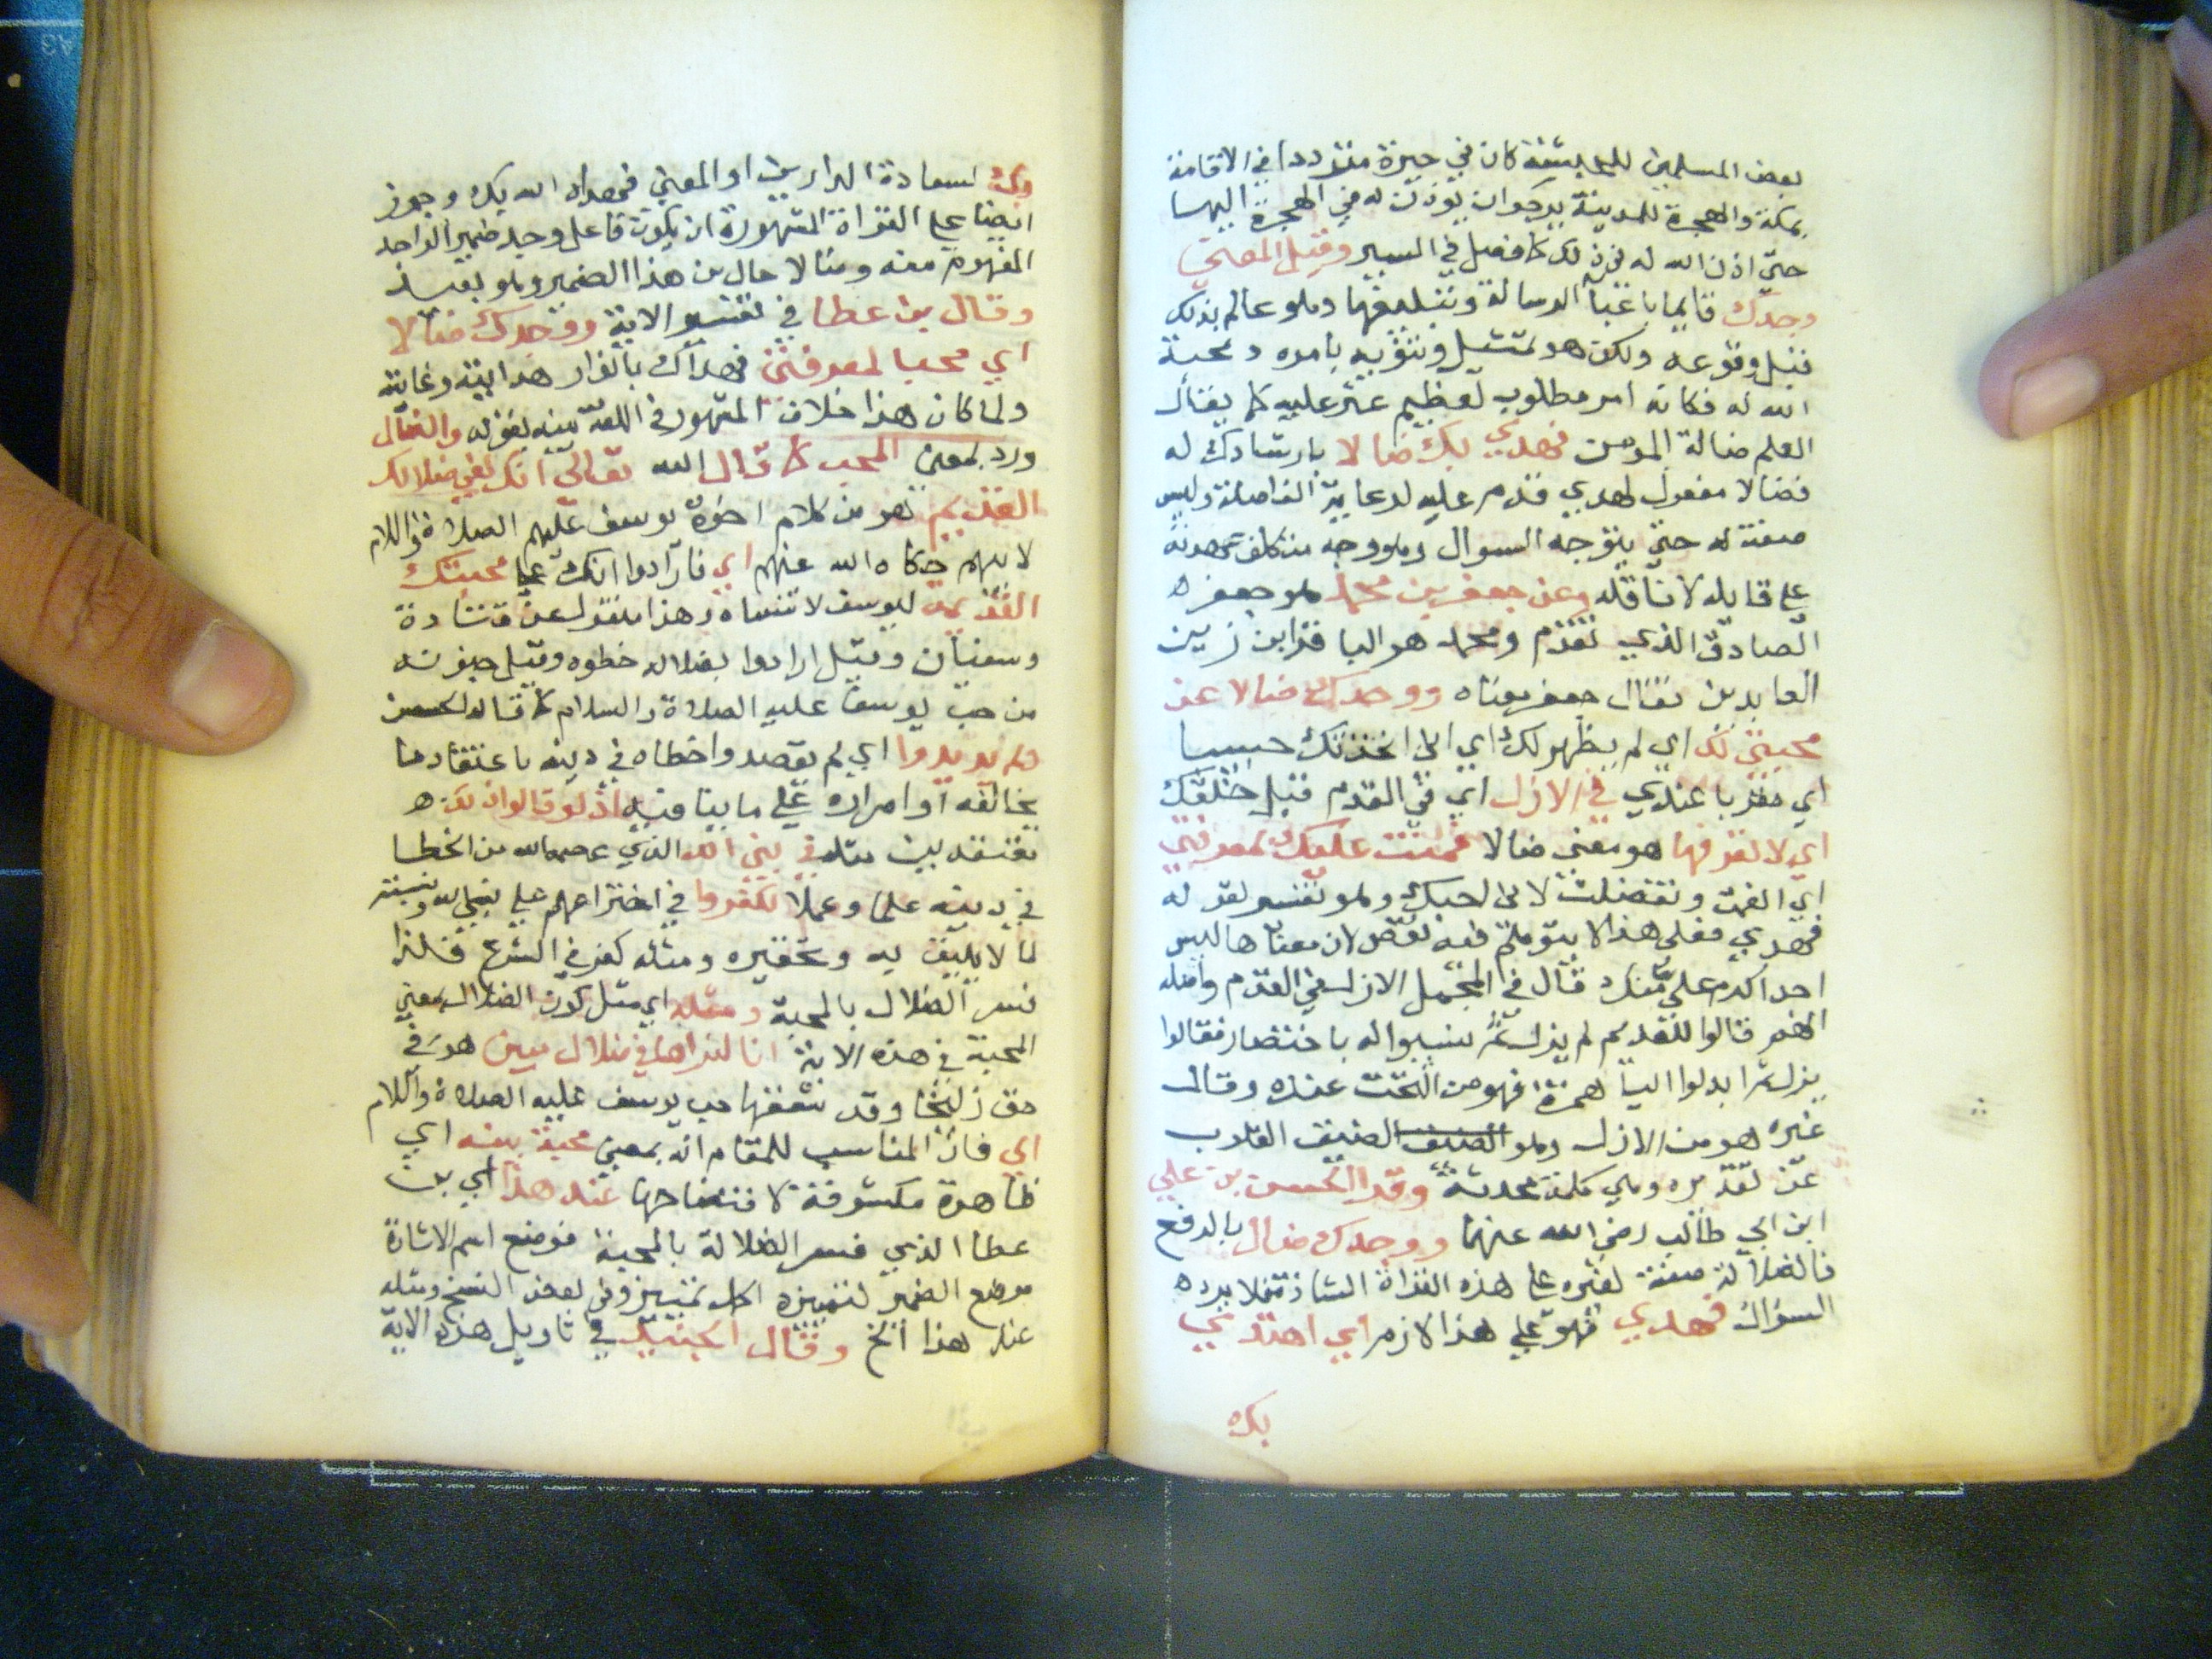 بعض المسلمين للحبشة كان في حيرة مترددا في الاقامة
بمكة والهجرة للمدينة يرجوان يؤذن له في الهجرة اليها
حتى اذن الله له في ذلك كما فصل في السير وقيل المعنى
وجدك قايما باعباء الرسالة وتبليغها وهو عالم بذلك
قبل وقوعه ولكن هو تمثيل وتنويه بامره ومحبة
الله له فكانه امر مطلوب لعظيم عثر عليه كما يقال
العلم ضالة المومن فهدي بك ضالا بارشادك له
فضالا مفعول لهدي قدم عليه لرعاية الفاصلة وليس
صفة له حتى يتوجه السوال وهو وجه متكلف عهدته
على قايله لا ناقله وعن جعفر بن محمد هو جعفر ه
الصادق الذي تقدم ومحمد هو الباقر ابن زين
العابدين فقال جعفر معناه ووجدك ضالا عن
محبتي لك اي لم يظهر لك اي اني اتخذتك حبيبا
اي مقربا عندي في الازل اي في القدم قبل خلقك
اي لا تعرفها هو معنى ضالا فمننت عليك بمعرفتي
اي انعمت وتفضلت لاني احبك وهو تفسير لقوله
فهدي فعلى هذا لا يتوهم فيه نقص لان معناها ليس
احد اكرم علي منك قال في المجمل الازل في القدم واصله
انهم قالوا للقديم لم يزل ثم نسبوا له باختصار فقالوا
يزلي ثم ابدلوا اليا همزة فهو من النحت عنده وقال
غيره هو من الازل وهو الضيق الضيق القلب
عن تقديره وهي كلمة محدثة وقرا الحسن بن علي
ابن ابي طالب رضي الله عنهما ووجدك ضال بالرفع
فالضلالة صفة لغيره على هذه القراة الشاذة فلا يرد ه
السؤال فهدي فهو على هذا لازم اي اهتدي
بك ه
بك لسعادة الدارين او المعنى فهداه الله بك وجوز
ايضا على القراة المشهورة ان يكون فاعل وجد ضمير الواحد
المفهوم منه وضالا حال من هذا الضمير وهو بعيد
وقال بن عطا في تفسير الاية ووجدك ضالا
اي محبا لمعرفتي فهداك بانوار هدايته وغايته
ولما كان هذا خلاف المشهور في اللغة بينه بقوله والضال
ورد بمعنى المحب كما قال الله تعالى انك لفي ضلالك
القديم فهو من كلام اخوة يوسف عليهم الصلاة والسلام
لابيهم حكاه الله عنهم اي فارادوا انك على محبتك
القديمة ليوسف لا تنساه وهذا منقول عن قتادة
وسفيان وقيل ارادوا بضلاله خطوه وقيل جنونه
من حب يوسف عليه الصلاة والسلام كما قاله الحسن
ولم يريدوا اي لم يقصدوا خطاه في دينه باعتقاد ما
يخالفه او امراره على ما ينافيه اذ لو قالوا ذلك ه
معتقدين مثله في نبي الله الذي عصمه الله من الخطا
في دينه علما وعملا لكفروا في اجترائهم على نبي الله ونسبته
لما لا يليق به وتحقيره ومثله كفر في الشرع فلذا
فسر الضلال بالمحبة ومثله اي مثل كون الضلال بمعنى
المحبة في هذه الاية انا لنراها في ضلال مبين هو في
حق زليخا وقد شغفها حب يوسف عليه الصلاة والسلام
اي فان المناسب للمقام انه بمعنى محبة بينه اي
ظاهرة مكشوفة لافتضاحها عند هذا اي بن
عطا الذي فسر الضلالة بالمحبة فوضع اسم الاشارة
موضع الضمير لتمييزه اكمل تمييز وفي بعض النسخ ومثله
عند هذا الخ وقال الجنيد في تاويل هذه الاية